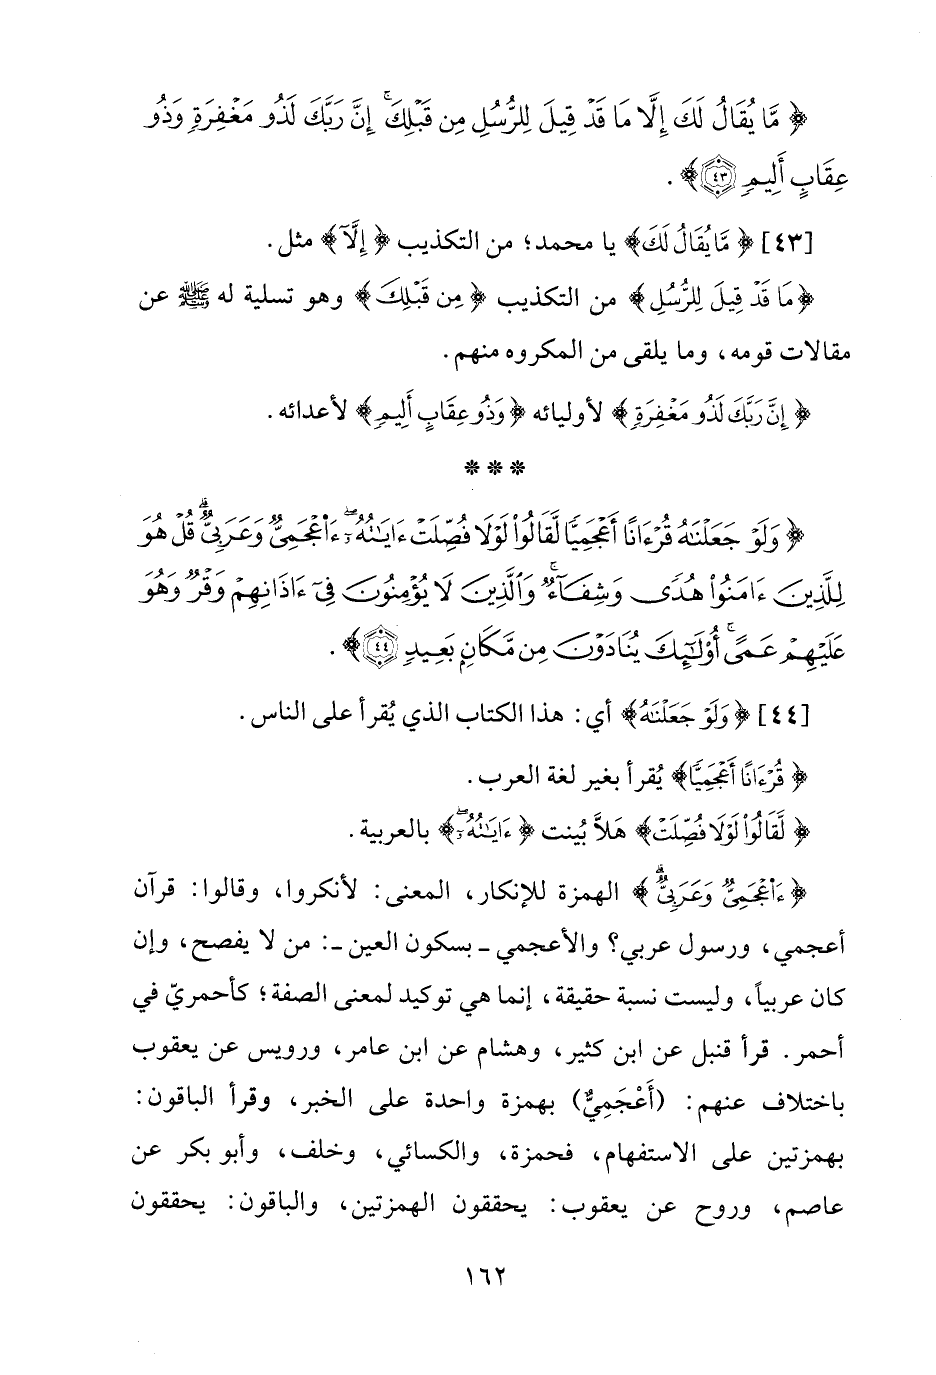 ﴿ مَّا يُقَالُ لَكَ إِلَّا مَا قَدْ قِيلَ لِلرُّسُلِ مِن قَبْلِكَ ۚ إِنَّ رَبَّكَ لَذُو مَغْفِرَةٍ وَذُو
عِقَابٍ أَلِيمٍ ﴿٤٣﴾ ﴾ .
[٤٣] ﴿ مَّا يُقَالُ لَكَ ﴾ يا محمد؛ من التكذيب ﴿ إِلَّا ﴾ مثل .
﴿ مَا قَدْ قِيلَ لِلرُّسُلِ ﴾ من التكذيب ﴿ مِن قَبْلِكَ ﴾ وهو تسلية له ﷺ عن
مقالات قومه، وما يلقى من المكروه منهم .
﴿ إِنَّ رَبَّكَ لَذُو مَغْفِرَةٍ ﴾ لأوليائه ﴿ وَذُو عِقَابٍ أَلِيمٍ ﴾ لأعدائه .
* * *
﴿ وَلَوْ جَعَلْنَٰهُ قُرْءَانًا أَعْجَمِيًّا لَّقَالُوا۟ لَوْلَا فُصِّلَتْ ءَايَٰتُهُۥٓ ۖ ءَا۬عْجَمِىٌّ وَعَرَبِىٌّ ۗ قُلْ هُوَ
لِلَّذِينَ ءَامَنُوا۟ هُدًى وَشِفَآءٌ ۚ وَٱلَّذِينَ لَا يُؤْمِنُونَ فِىٓ ءَاذَانِهِمْ وَقْرٌ وَهُوَ
عَلَيْهِمْ عَمًى ۚ أُو۟لَٰٓئِكَ يُنَادَوْنَ مِن مَّكَانٍ بَعِيدٍ ﴿٤٤﴾ ﴾ .
[٤٤] ﴿ وَلَوْ جَعَلْنَٰهُ ﴾ أي: هذا الكتاب الذي يُقرأ على الناس .
﴿ قُرْءَانًا أَعْجَمِيًّا ﴾ يُقرأ بغير لغة العرب .
﴿ لَّقَالُوا۟ لَوْلَا فُصِّلَتْ ﴾ هَلاَّ بُينت ﴿ ءَايَٰتُهُۥٓ ۖ ﴾ بالعربية .
﴿ ءَا۬عْجَمِىٌّ وَعَرَبِىٌّ ۗ ﴾ الهمزة للإنكار، المعنى: لأنكروا، وقالوا: قرآن
أعجمي، ورسول عربي؟ والأعجمي ـ بسكون العين ـ: من لا يفصح، وإن
كان عربياً، وليست نسبة حقيقة، إنما هي توكيد لمعنى الصفة؛ كأحمريّ في
أحمر. قرأ قنبل عن ابن كثير، وهشام عن ابن عامر، ورويس عن يعقوب
باختلاف عنهم: (أَعْجَمِيٌّ) بهمزة واحدة على الخبر، وقرأ الباقون:
بهمزتين على الاستفهام، فحمزة، والكسائي، وخلف، وأبو بكر عن
عاصم، وروح عن يعقوب: يحققون الهمزتين، والباقون: يحققون
١٦٢